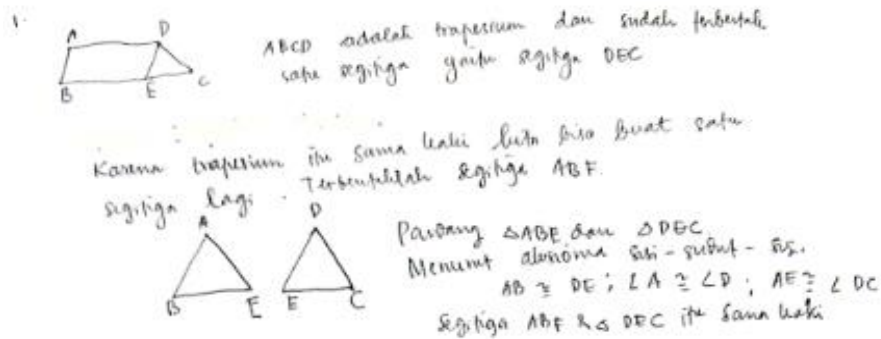 1.
A D
B E C
ABCD adalah trapesium dan sudah terbentuk
satu segitiga yaitu segitiga DEC
Karena trapesium itu sama kaki kita bisa buat satu
segitiga lagi. Terbentuklah segitiga ABE.
A D
B E E C
Pandang △ABE dan △DEC
Menurut aksioma sisi - sudut - sisi.
AB ≅ DE ; ∠A ≅ ∠D ; AE ≅ ∠DC
Segitiga ABE & △ DEC itu sama kaki